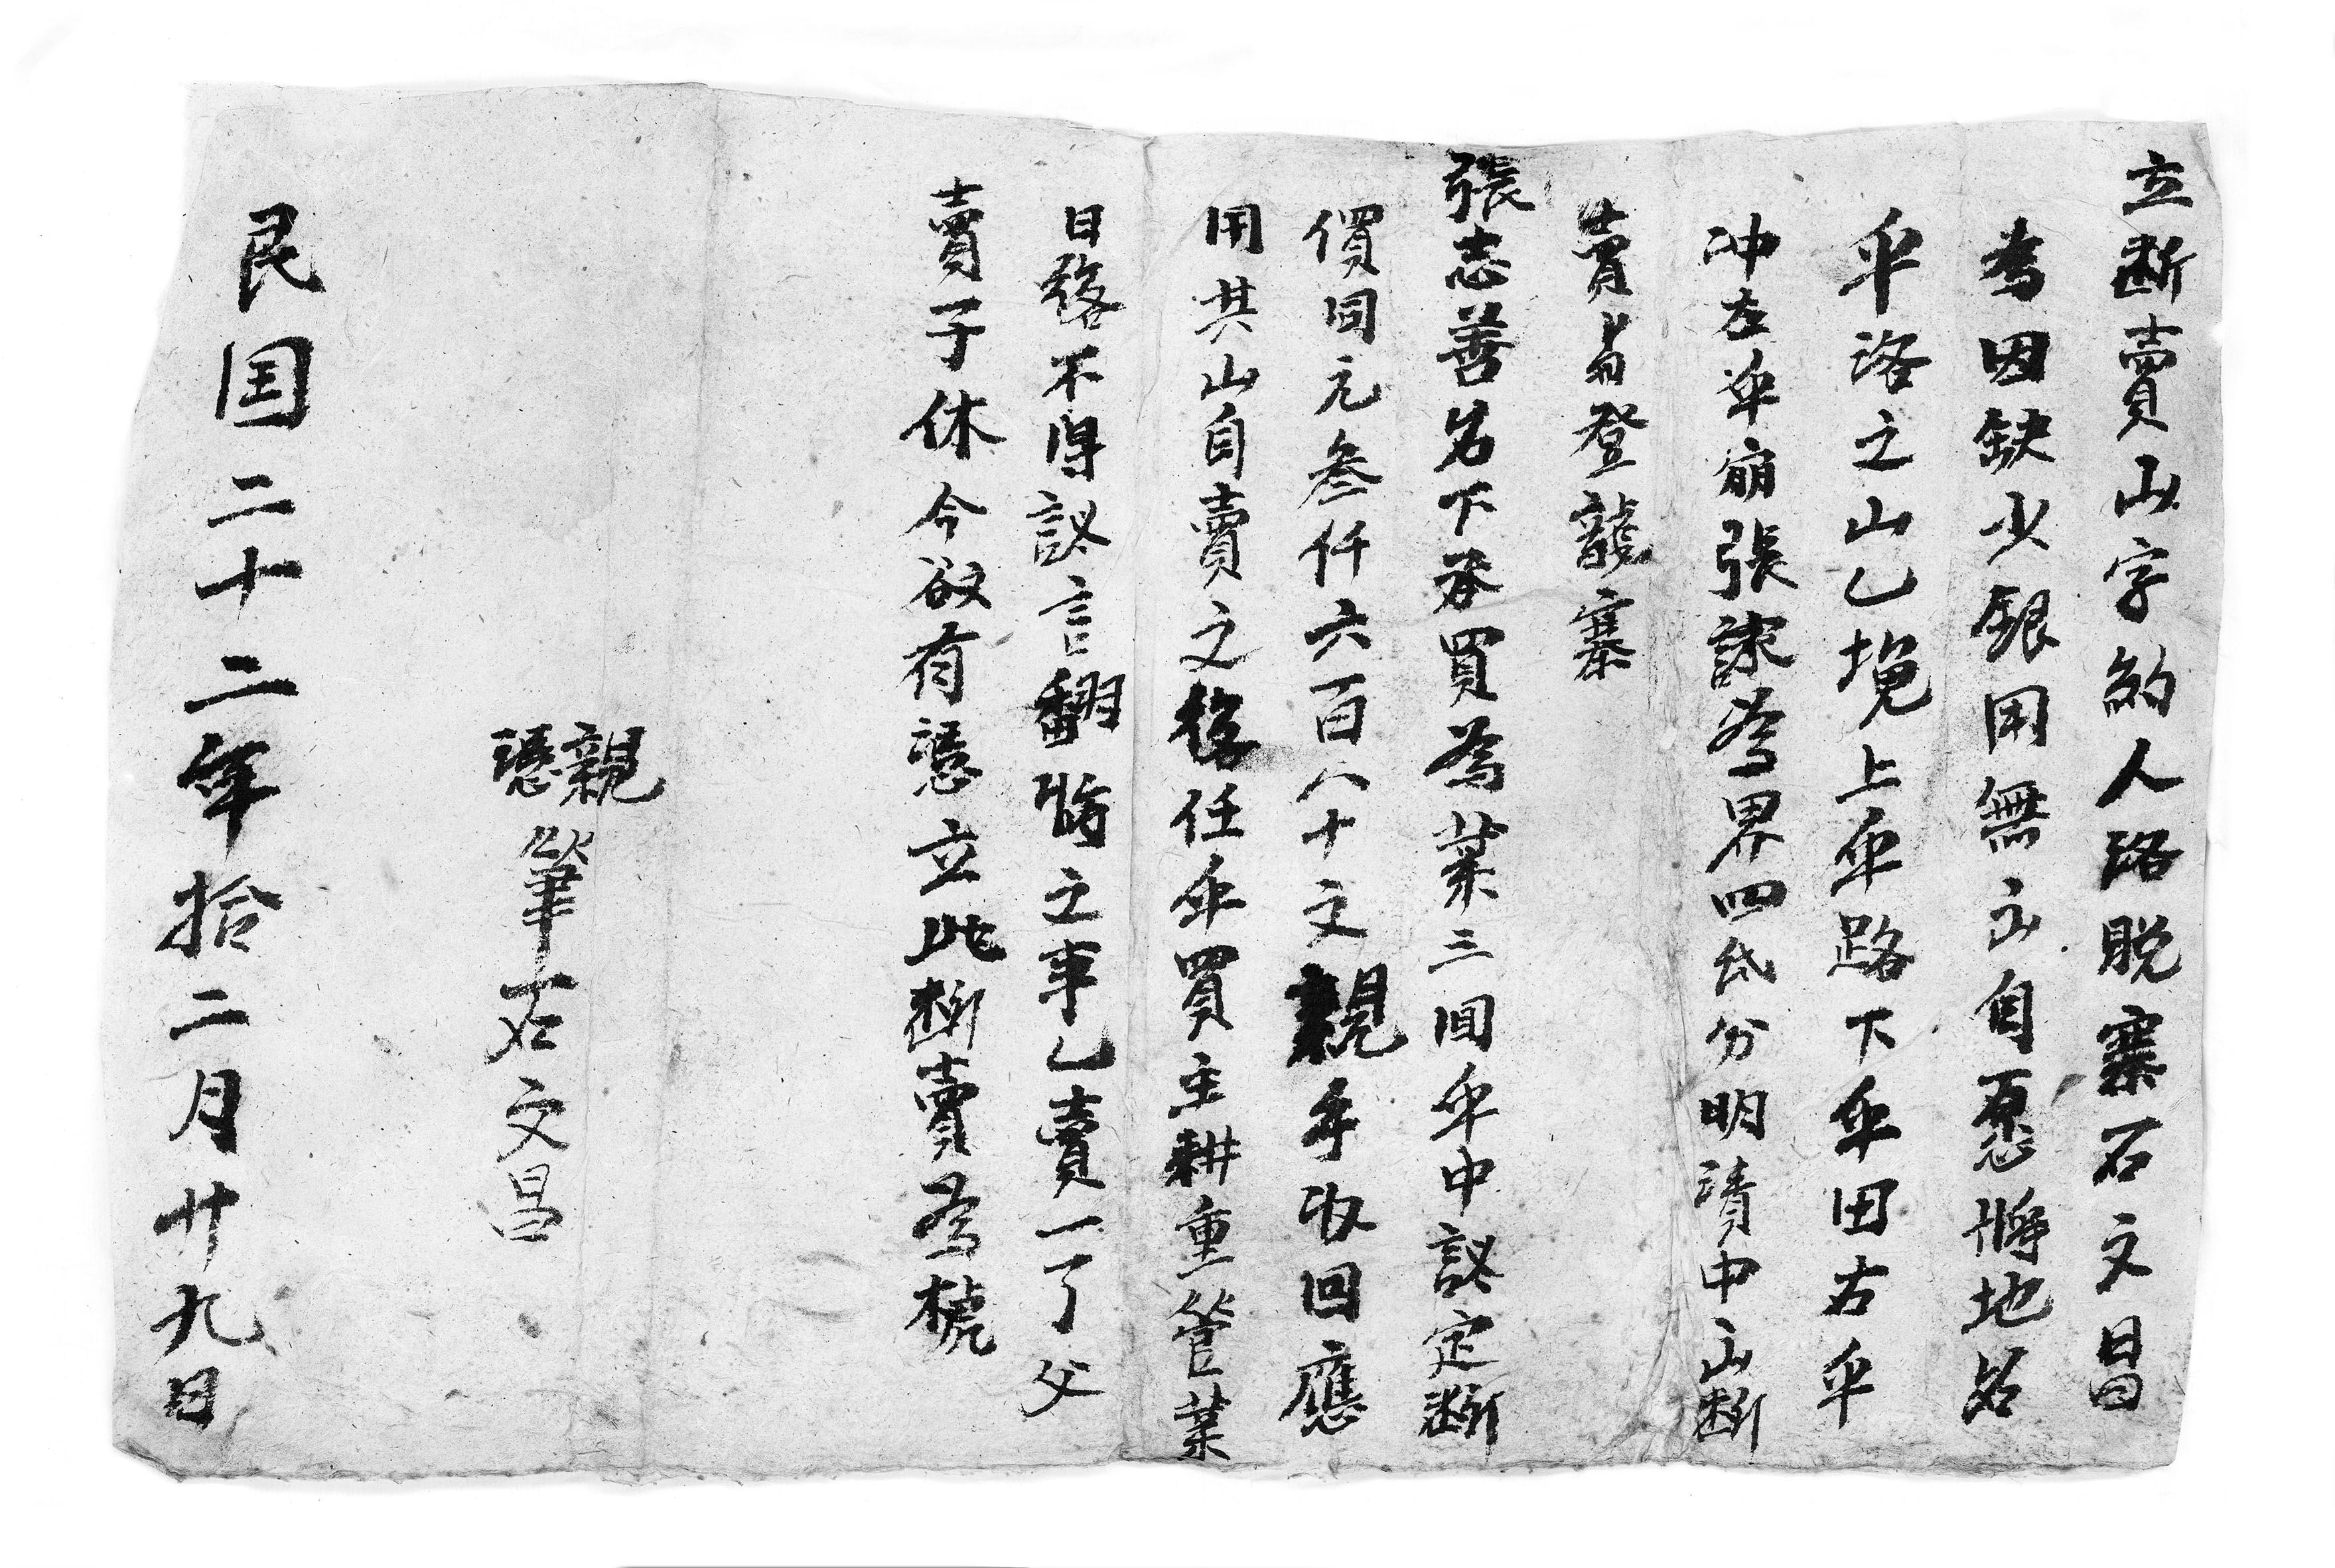 立断賣山字約人路脱寨石文昌
為因缺少銀用無出自愿將地名
伞洛之山乙塊上伞路下伞田右伞
冲左伞崩張諫為界四底分明請中山断
賣与登龍寨
張志善名下承買為業三面伞中議定断
價同元叁仟六百八十文親手收回應
用其山自賣之後任伞買主耕重管業
日後不得議言翻悔之事乙賣一了父
賣子休今欲有憑立此断賣為㨿
親筆石文昌
憑
民国二十二年拾二月廿九日